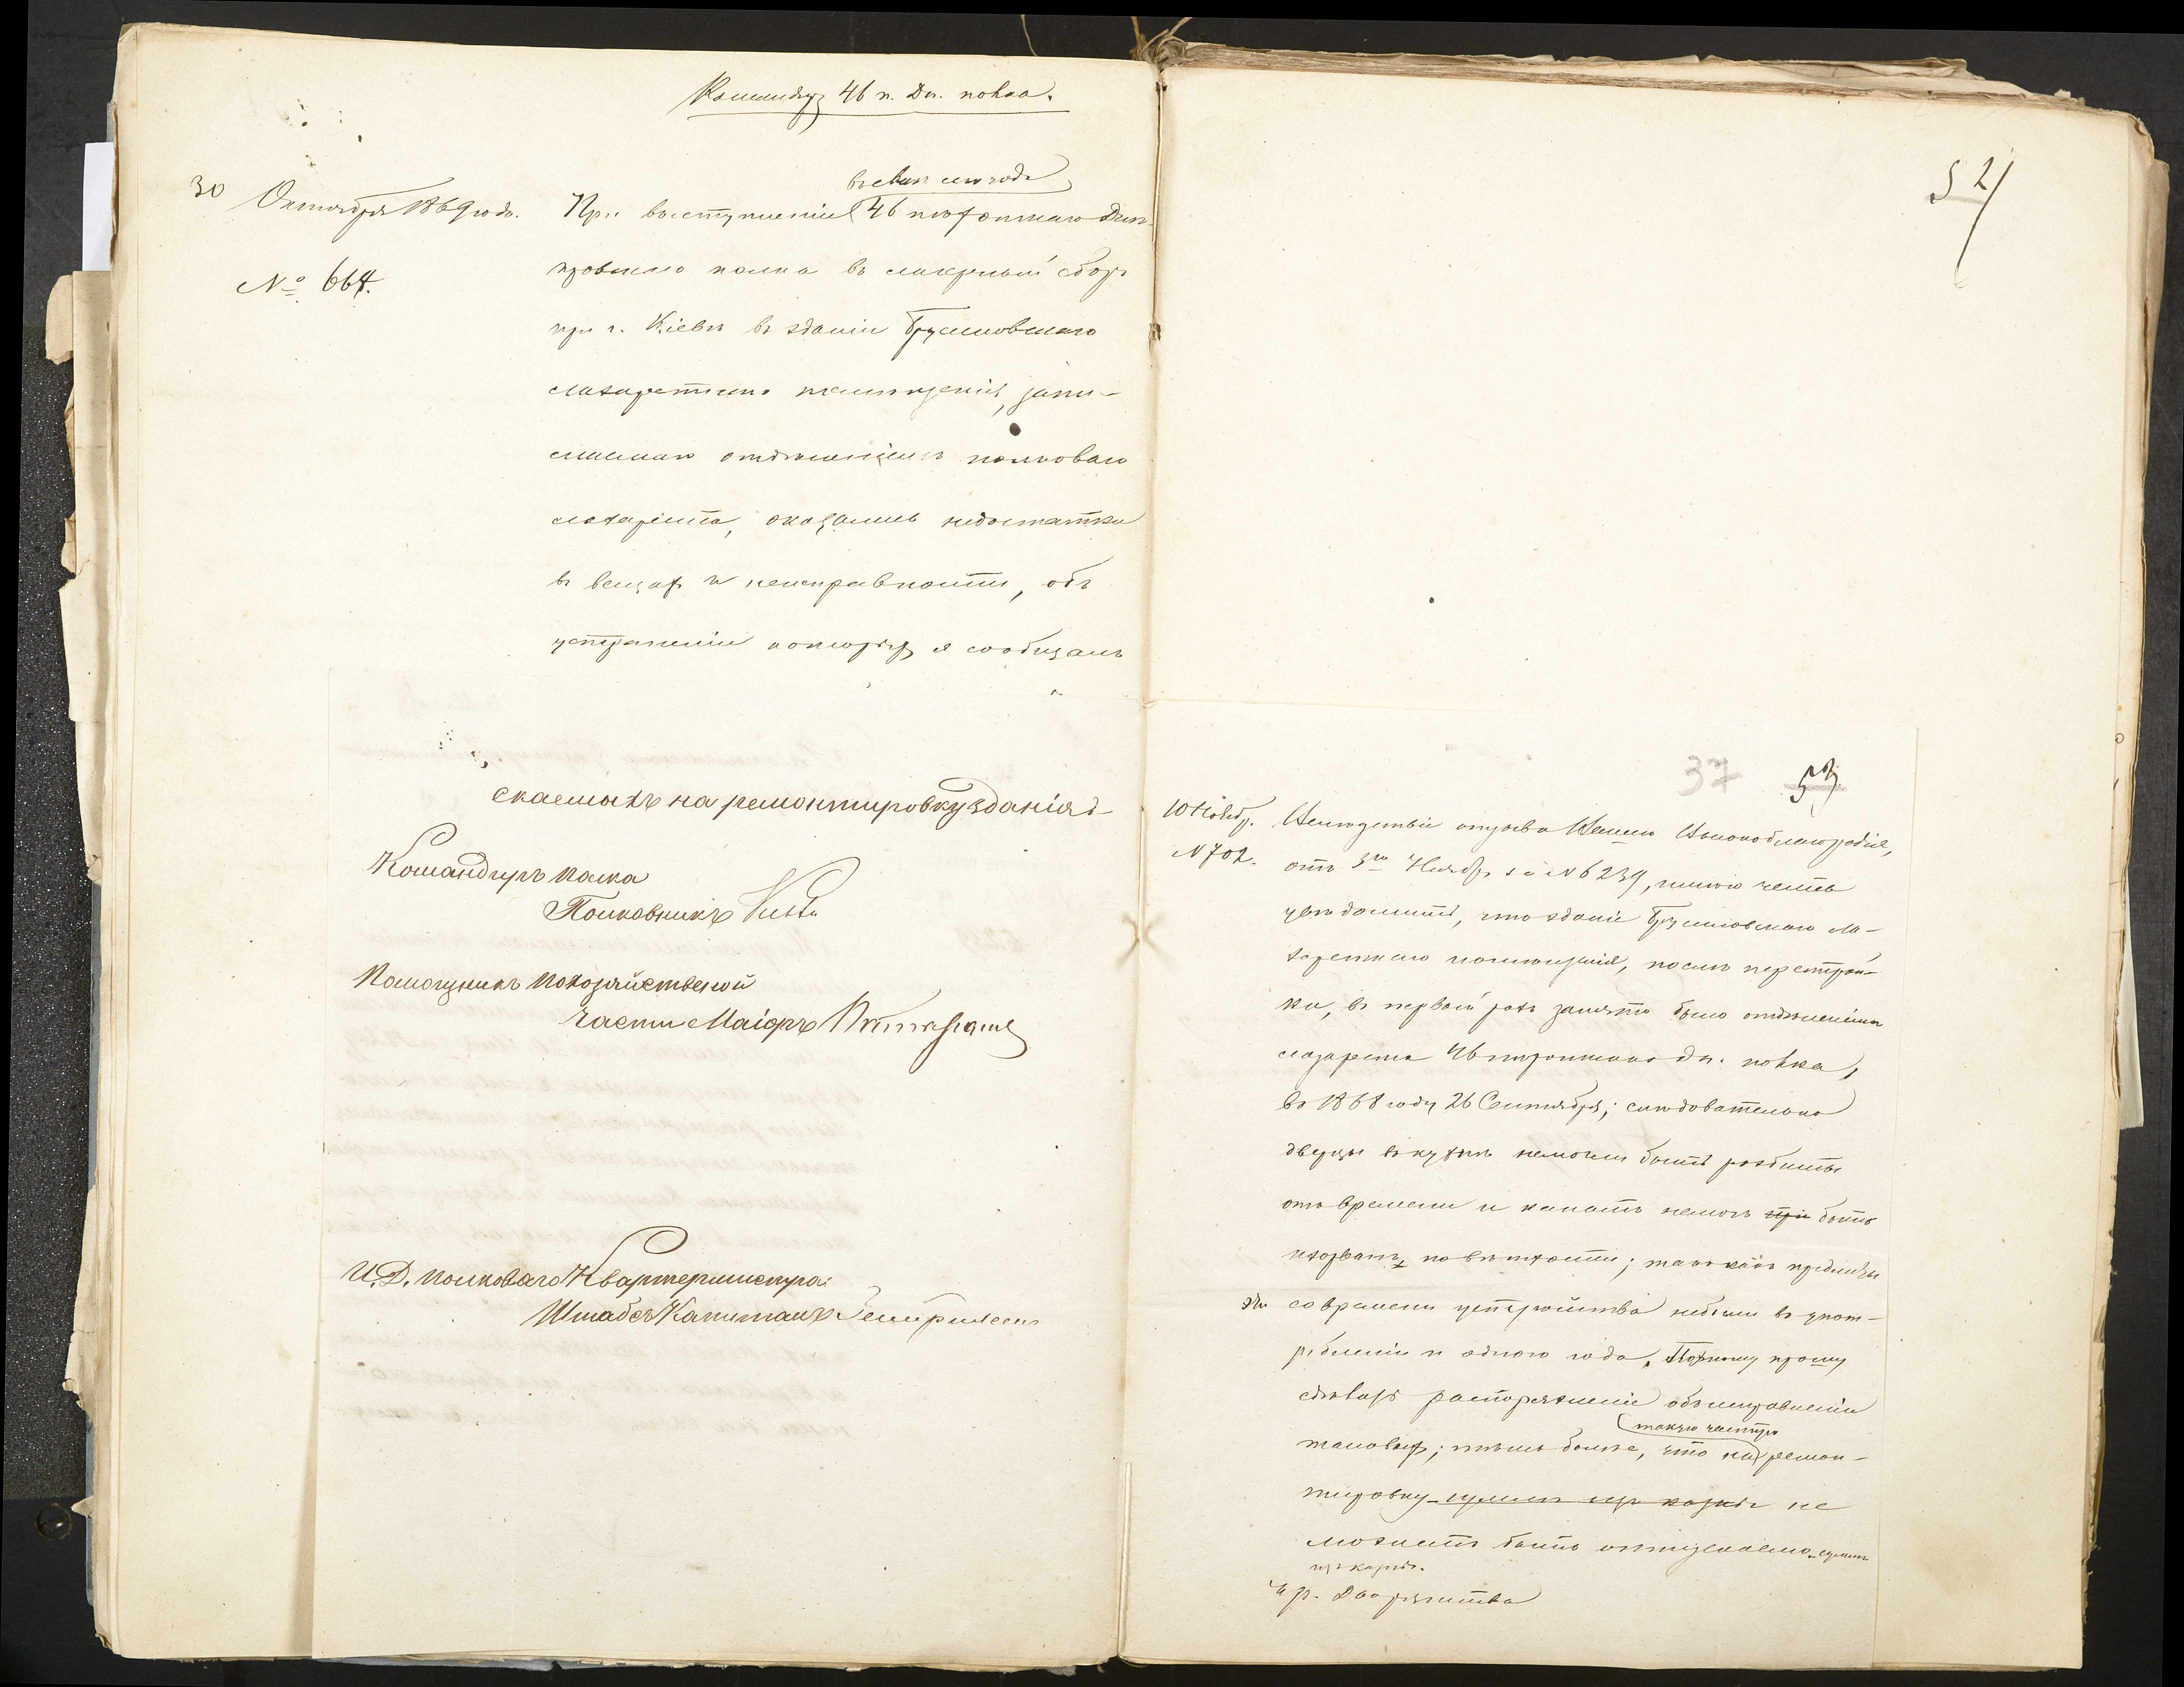 Командиру 46 п. Дн. полка.
30 Октября 1869 года.
№ 664.
въ сего года
При выступленіи 46 пѣхотнаго Днѣ-
провскаго полка въ лагерный сборъ
при г. Кіевѣ въ зданіи Брусиловскаго
лазаретнаго помѣщенія, зани-
маемаго отдѣленіемъ полковаго
лазарета, оказались недостатки
въ вещахъ и неисправности, объ
устраненіи которыхъ я сообщалъ
скаемыхъ на ремонтировку зданія
Командиръ полка
Полковникъ
Помощникъ по хозяйственной
части Маіоръ
И.Д. полковаго Квартермистра
Штабсъ Капитанъ
52
37 53
10 Ноябр.
№ 702.
Вслѣдствіе отзыва Вашего Высокоблагородія,
отъ 3го Ноябр. за № 6239, имѣю честь
увѣдомить, что зданіе Брусиловскаго ла-
заретнаго помѣщенія, послѣ перестрой-
ки, въ первый разъ занято было отдѣленіемъ
лазарета 46 пѣхотнаго Дн. полка,
въ 1868 году 26 Сентября; слѣдовательно
дверцы въ кухнѣ немогли быть разбиты
отъ времени и канатъ немогъ быть
изорванъ по ветхости; такъ какъ предметы
эти со времени устройства небыли въ упот-
ребленіи и одного года. Потому прошу
сдѣлать распоряженіе объ исправленіи
такую частую
таковыхъ; тѣмъ болѣе, что на ремон-
тировку суммъ изъ казны не
можетъ быть отпускаемо суммъ
изъ казны.